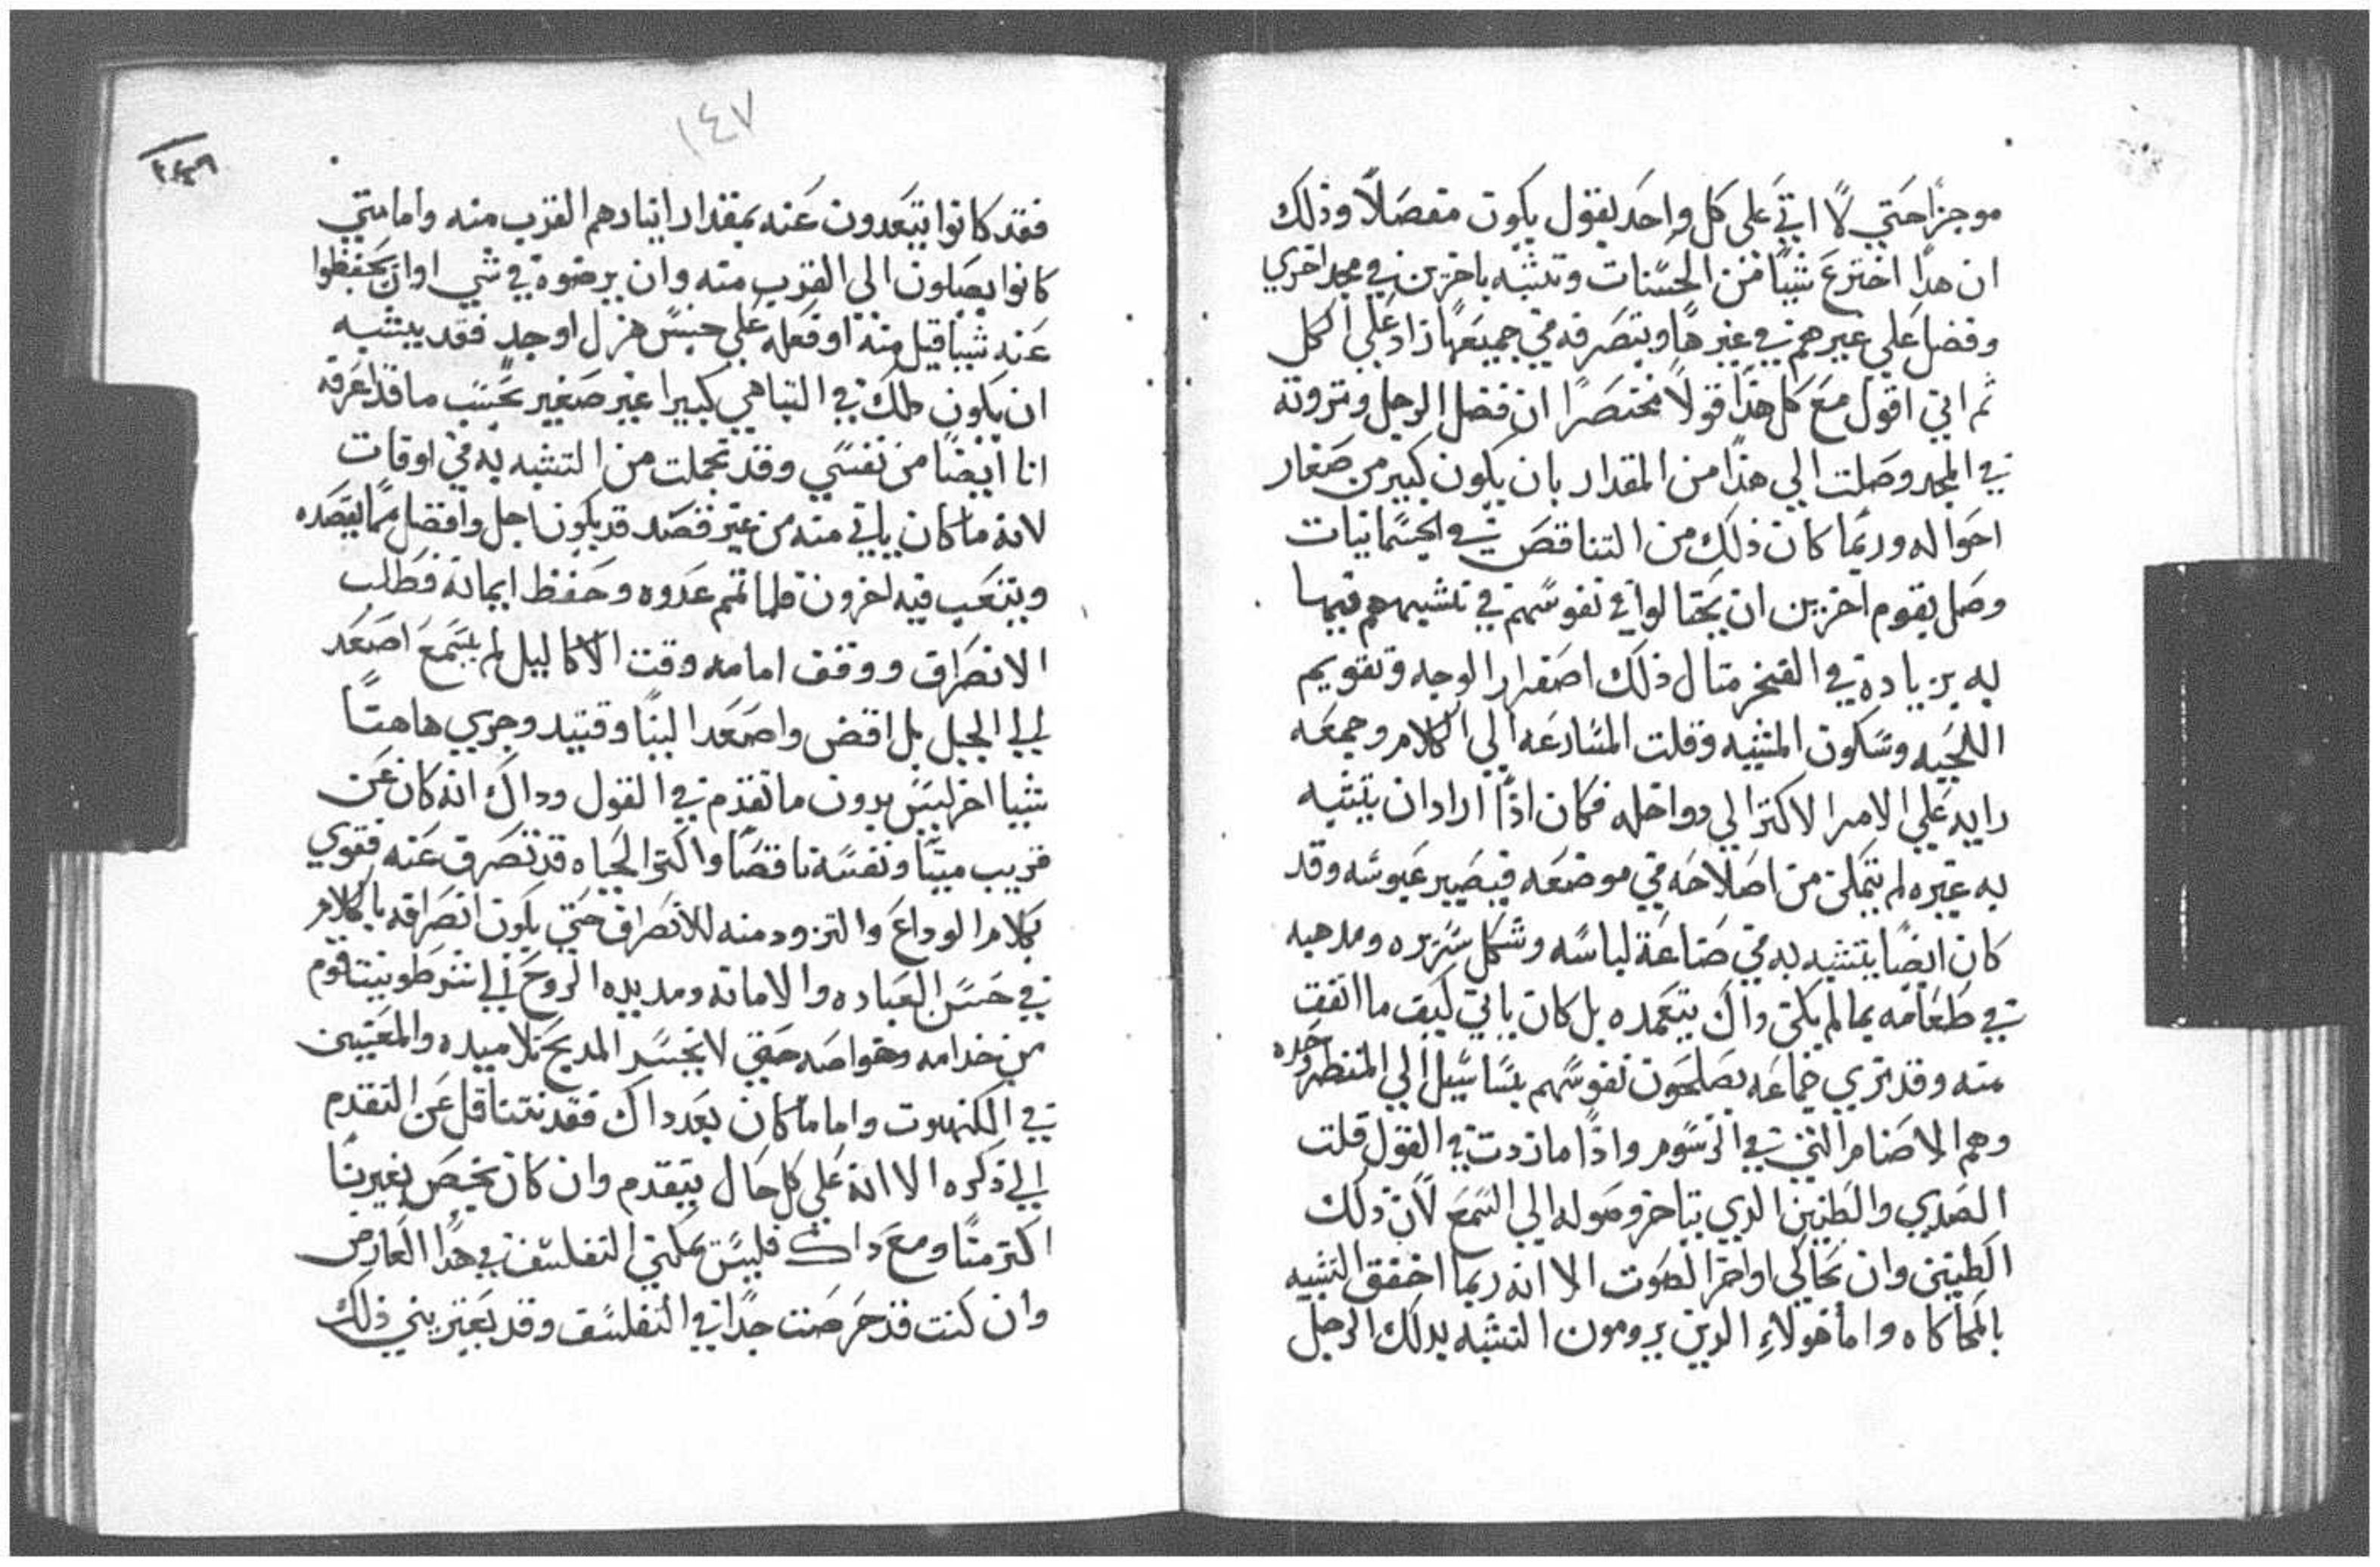 موجزا حتي لا اتي علي كل واحد بقول يكون مفصلا وذلك
ان هذا اخترع شيا من الحسنات وتشبه باخرين في مجد اخري
وفضل علي غيرهم في غيرها وبتصرفه في جميعها زاد علي الكل
ثم اني اقول مع كل هذا قولا مختصرا ان فضل الرجل وثروته
في المجد وصلت الي هذا من المقدار بان يكون كبير من صغار
احواله وربما كان ذلك من التناقص في الجسمانيات
وصل بقوم اخرين ان يحتالوا في نفوسهم في تشبههم فيها
به بزياده في الفخر مثال ذلك اصفرار الوجه وتقويم
اللحيه وسكون المشيه وقلت المسارعه الي الكلام وجمعه
رايه علي الامر الاكثر الي دواخله فكان اذا اراد ان يتشبه
به غيره لم يتمكن من اصلاحه في موضعه فيصير عبوسه وقد
كان ايضا يتشبه به في صناعة لباسه وشكل سريره ومدهبه
في طعامه بما لم يكن داك يتعمده بل كان ياتي كيف ما اتفق
منه وقد تري جماعه يصلحون نفوسهم بساسيل الي المنظر وحده
وهم الاصنام التي في الرسوم واذا ما زدت في القول قلت
الصدي والطنين الدي يتاخر وصوله الي السمع لان ذلك
الطنين وان يحاكي اواخر الصوت الا انه ربما اخفق التشبيه
بالمحاكاه واما هولاء الدين يرومون التشبه بدلك الرجل
١٤٧
فقد كانوا يتبعدون عنه بمقدار ايثارهم القرب منه واما متي
كانوا يصلون الي القرب منه وان يرضوه في شي او ان يحفظوا
عنه شيا قيل منه او فعله علي جنس هزل او جد فقد يتشبه
ان يكون دلك في التباهي كبيرا غير صغير بحسب ما قد اعرفه
انا ايضا من نفسي وقد تجملت من التشبه به في اوقات
لانه ما كان ياتي منه من غير قصد قد يكون اجل وافضل مما يقصده
ويتعب فيه اخرون فلما تمم عدوه وحفظ ايمانه فطلب
الانصراف ووقف امامه وقت الاكاليل لم يسمع اصعد
الي الجبل بل اقض واصعد الينا وقييد وجري هاهنا
شيا اخر ليس بدون ما تقدم في القول وداك انه كان عن
قريب ميتا ونفسه ناقصا واكثر الحياه قد تصرف عنه فقوي
بكلام الوداع والتزود منه للانصراف حتي يكون انصرافه بالكلام
في حسن العباده والامانه ومد يده الروح الي اشرطونيتا قوم
من خدامه وخواصه حتي لا يخسر المديح تلاميده والمعتيين
في الكنهوت واما ما كان بعد داك فقد نتناقل عن التقدم
الي ذكره الا انه علي كل حال يتقدم وان كان يختص بغيرنا
اكثر منا ومع داك فليس يمكني التفلسف في هدا العارض
وان كنت قد حرصت جدا في التفلسف وقد يعتريني ذلك